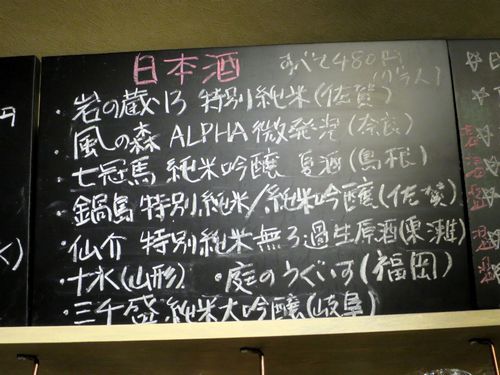 日本酒 すべて480円
(グラス)
・岩の蔵13 特別純米(佐賀)
・風の森 ALPHA 微発泡(奈良)
・七冠馬 純米吟醸 夏酒(島根)
・鍋島 特別純米/純米吟醸(佐賀)
・仙介 特別純米無ろ過生原酒(東灘)
・十水(山形) ・庭のうぐいす(福岡)
・三千盛 純米大吟醸(岐阜)
円